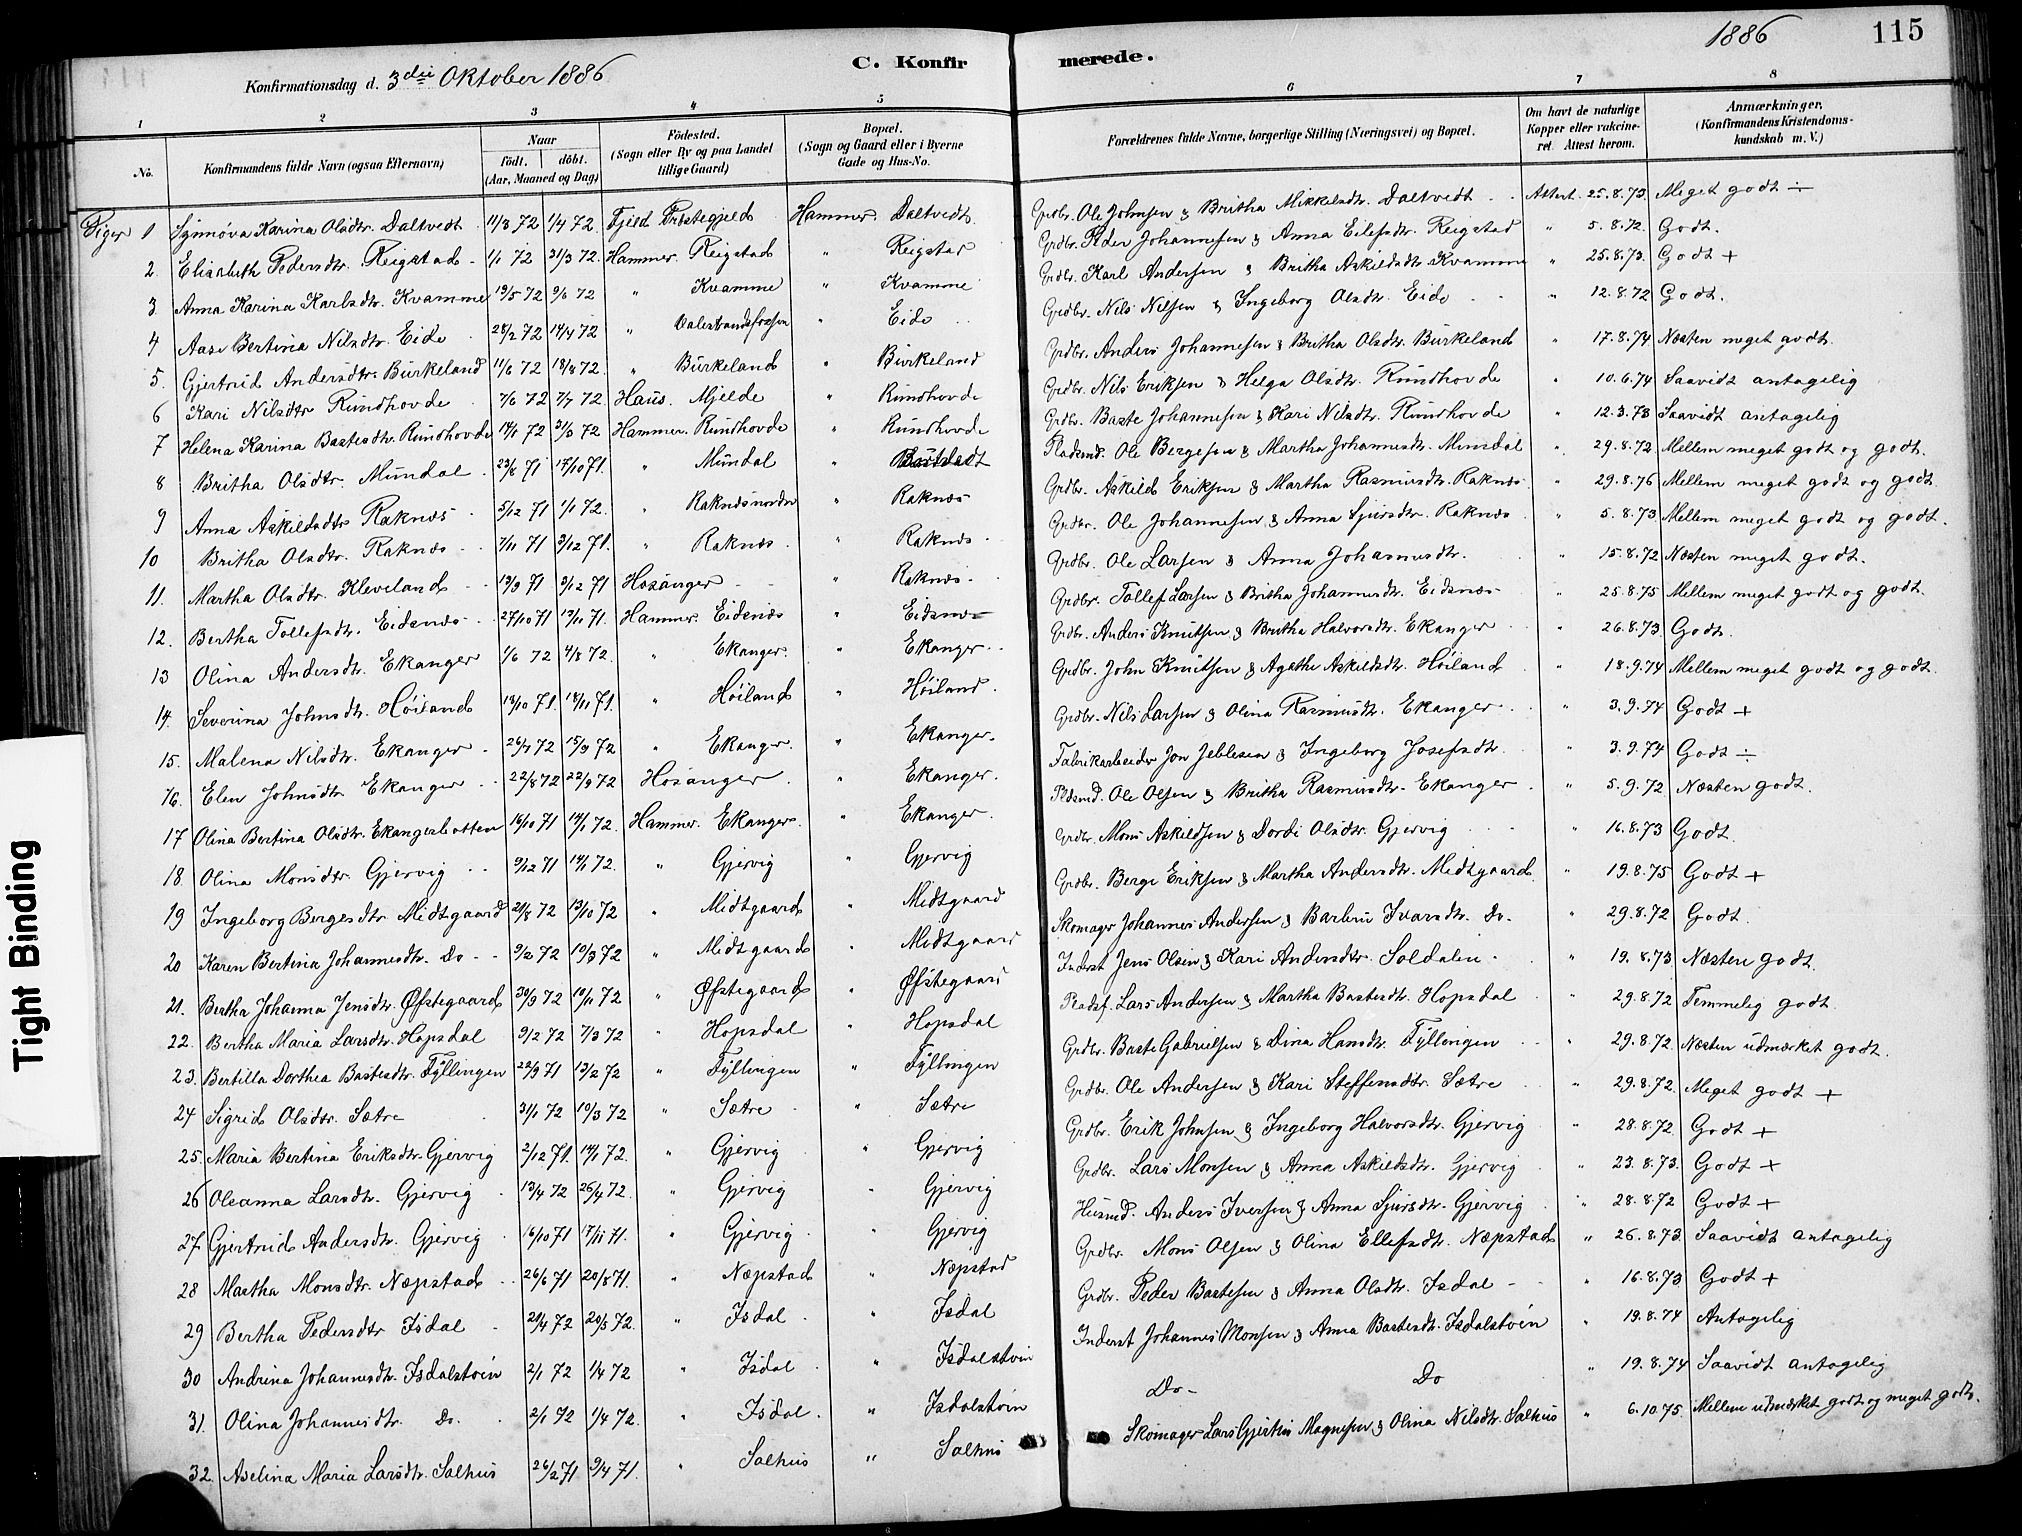 1886 115
C. Konfirmerede.
Konfirmationsdag d. 3die Oktober 1886
1 2 3 4 5 6 7 8
No. Konfirmandens fulde Navn (ogsaa Efternavn) Naar født. døbt. (Aar, Maaned og Dag) Fødested. (Sogn eller By og paa Landet tillige Gaard) Bopæl. (Sogn og Gaard eller i Byerne Gade og Hus-No. Forældrenes fulde Navne, borgerlige Stilling (Næringsvei) og Bopæl. Om havt de naturlige Kopper eller vakcineret. Attest herom. Anmærkninger. (Konfirmandens Kristendomskundskab m. V.)
Piger 1 Synnøva Karina Olsdtr. Daltvedt 11/3 72 1/4 72 Fjeld Præstegjeld Hammer Daltvedt Grdbr. Ole Johnsen & Britha Mikkelsdtr. Daltvedt Attest 25.8.73 Meget godt ÷
2. Elisabeth Pedersdtr. Reigstad 1/1 72 31/3 72 Hammer Reigstad " Reigstad Grdbr. Peder Johannesen & Anna Eilefsdtr. Reigstad " 5.8.72 Godt.
3 Anna Karina Karlsdtr. Kvamme 19/5 72 9/6 72 " Kvamme " Kvamme Grdbr. Karl Andersen & Britha Askildsdtr. Kvamme " 25.8.73 Godt +
4 Aase Bertina Nilsdtr. Eide 28/2 72 14/4 72 " Valestrandsfossen " Eide Grdbr. Nils Nilsen & Ingeborg Olsdtr. Eide " 12.8.72 Godt.
5. Gjertrud Andersdtr. Burkeland 11/6 72 18/8 72 " Burkeland " Burkeland Grdbr. Anders Johannesen & Britha Olsdtr. Burkeland " 17.8.74 Næsten meget godt.
6 Kari Nilsdtr Rundhovde 7/6 72 7/7 72 Haus. Mjelde " Rundhovde Grdbr. Nils Eriksen & Helga Olsdtr. Rundhovde " 10.6.74 Saavidt antagelig
7 Helena Karina Bastesdtr. Rundhovde 14/1 72 31/3 72 Hammer. Rundhovde " Rundhovde Grdbr. Baste Johannesen & Kari Nilsdtr. Rundhovde " 12.3.73 Saavidt antagelig
8 Britha Olsdtr. Mundal 23/6 71 17/10 71 " Mundal " Pladsmd. Ole Bergesen & Martha Johannesdtr. Mundal " 29.8.72 Mellem meget godt og godt.
9 Anna Askildsdtr Raknes 5/12 71 1/1 72 " Raknesnordre " Raknes Grdbr. Askild Eriksen & Martha Rasmusdtr. Raknes " 29.8.76 Mellem meget godt og godt
10 Britha Olsdtr. Raknes 7/11 71 3/12 71 " Raknes " Raknes Grdbr. Ole Johannesen & Anna Sjursdtr. Raknes " 5.8.73 Mellem meget godt og godt.
11. Martha Olsdtr. Kleveland 13/9 71 3/12 71 Hosanger " Raknes Grdbr. Ole Larsen & Anna Johannesdtr. " 15.8.72 Næsten meget godt.
12. Bertha Tollefsdtr. Eidsnes 27/10 71 19/11 71 Hammer. Eidsnes " Eidsnes Grdbr. Tollef Larsen & Britha Johannesdtr. Eidsnes " 25.8.75 Mellem meget godt og godt.
13 Olina Andersdtr. Ekanger 1/6 72 4/8 72 " Ekanger " Ekanger Grdbr. Anders Knutsen & Britha Halvorsdtr. Ekanger " 26.8.73 Godt.
14. Severina Johnsdtr. Høiland 13/10 71 18/11 71 " Høiland " Høiland Grdbr. John Knutsen & Agathe Askildsdtr. Høiland " 18.9.74 Mellem meget godt og godt.
15. Malena Nilsdtr. Ekanger 26/7 72 15/9 72 " Ekanger " Ekanger Grdbr. Nils Larsen & Olina Rasmusdtr. Ekanger " 3.9.74 Godt +
16. Elen Johnsdtr. Ekanger 22/8 72 22/9 72 Hosanger " Ekanger Fabrikarbeider Jon Jellesen & Ingeborg Josefsdtr. " 3.9.74 Godt ÷
17 Olina Bertina Olsdtr. Ekangerbotten 16/10 71 14/1 72 Hammer. Ekanger " Ekanger Pldsmd. Ole Olsen & Britha Rasmusdtr. Ekanger " 5.9.72 Næsten godt.
18. Olina Monsdtr. Gjervig 9/12 71 14/1 72 " Gjervig " Gjervig Grdbr. Mons Askildsen & Dordi Olsdtr. Gjervig " 16.8.73 Godt.
19 Ingeborg Bergesdtr Midtgaard 21/8 72 13/10 72 " Midtgaard " Midtgaard Grdbr. Berge Eriksen & Martha Andersdtr. Midtgaard " 19.8.75 Godt +
20 Karen Bertina Johannesdtr. Do 9/2 72 10/3 72 " Midtgaard " Midtgaard Skomager Johannes Andersen & Barbru Ivarsdtr. Do. " 29.8.72 Godt
21. Bertha Johanna Jensdtr. Øfstegaard 30/9 72 10/11 72 " Øfstegaard " Øfstegaard Inderst Jens Olsen & Kari Andersdtr. Soldalen " 19.8.73 Næsten godt.
22. Bertha Maria Larsdtr. Hopsdal 9/2 72 7/3 72 " Hopsdal " Hopsdal Pladsf. Lars Andersen & Martha Bastesdtr. Hopsdal " 29.8.72 Temmelig godt.
23. Bertilla Dorthea Bastesdtr. Fyllingen 22/9 71 13/2 72 " Fyllingen " Fyllingen Grdbr. Baste Gabrielsen & Dina Hansdtr. Fyllingen " 29.8.72. Næsten udmærket godt.
24 Sigrid Olsdtr. Sætre 31/1 72 10/3 72 " Sætre " Sætre Grdbr. Ole Andersen & Kari Steffensdtr. Sætre " 29.8.72. Meget godt +
25. Maria Bertina Eriksdtr. Gjervig 2/12 71. 14/1 72. " Gjervig " Gjervig Grdbr. Erik Johnsen & Ingeborg Halvorsdtr. Gjervig " 28.8.72 Godt +
26 Oleanna Larsdtr. Gjervig 13/4 72 26/4 72. " Gjervig " Gjervig Grdbr. Lars Monsen & Anna Askildsdtr. Gjervig " 23.8.73. Godt +
27 Gjertrud Andersdtr. Gjervig 16/10 71 17/11 71. " Gjervig " Gjervig Husmd. Anders Iversen & Anna Sjursdtr. Gjervig " 28.8.72 Godt +
28 Martha Monsdtr. Næpstad 26/6 71 20/8 71. " Næpstad " Næpstad Grdbr. Mons Olsen & Olina Ellefsdtr. Næpstad " 26.8.73 Saavidt antagelig
29 Bertha Pedersdtr Isdal 21/4 72 20/5 72. " Isdal " Isdal Grdbr. Peder Bastesen & Anna Olsdtr. Isdal " 16.8.73 Godt +
30 Andrina Johannesdtr. Isdalstøen 2/1 72 1/4 72 " Isdal " Isdalstøen Inderst Johannes Monsen & Anna Bastesdtr. Isdalstøen " 19.8.74 Antagelig
31. Olina Johannesdtr. Do. 2/1 72 1/4 72. " Isdal. " Isdalstøen Do Do " 19.8.74 Saavidt antagelig
32. Aselina Maria Larsdtr. Salhus 26/2 71 9/4 71. " Salhus " Salhus Skomager Lars Gjertin Magnesen & Olina Nilsdtr. Salhus " 6.10.75. Mellem udmærket godt og meget godt.
Tight Binding